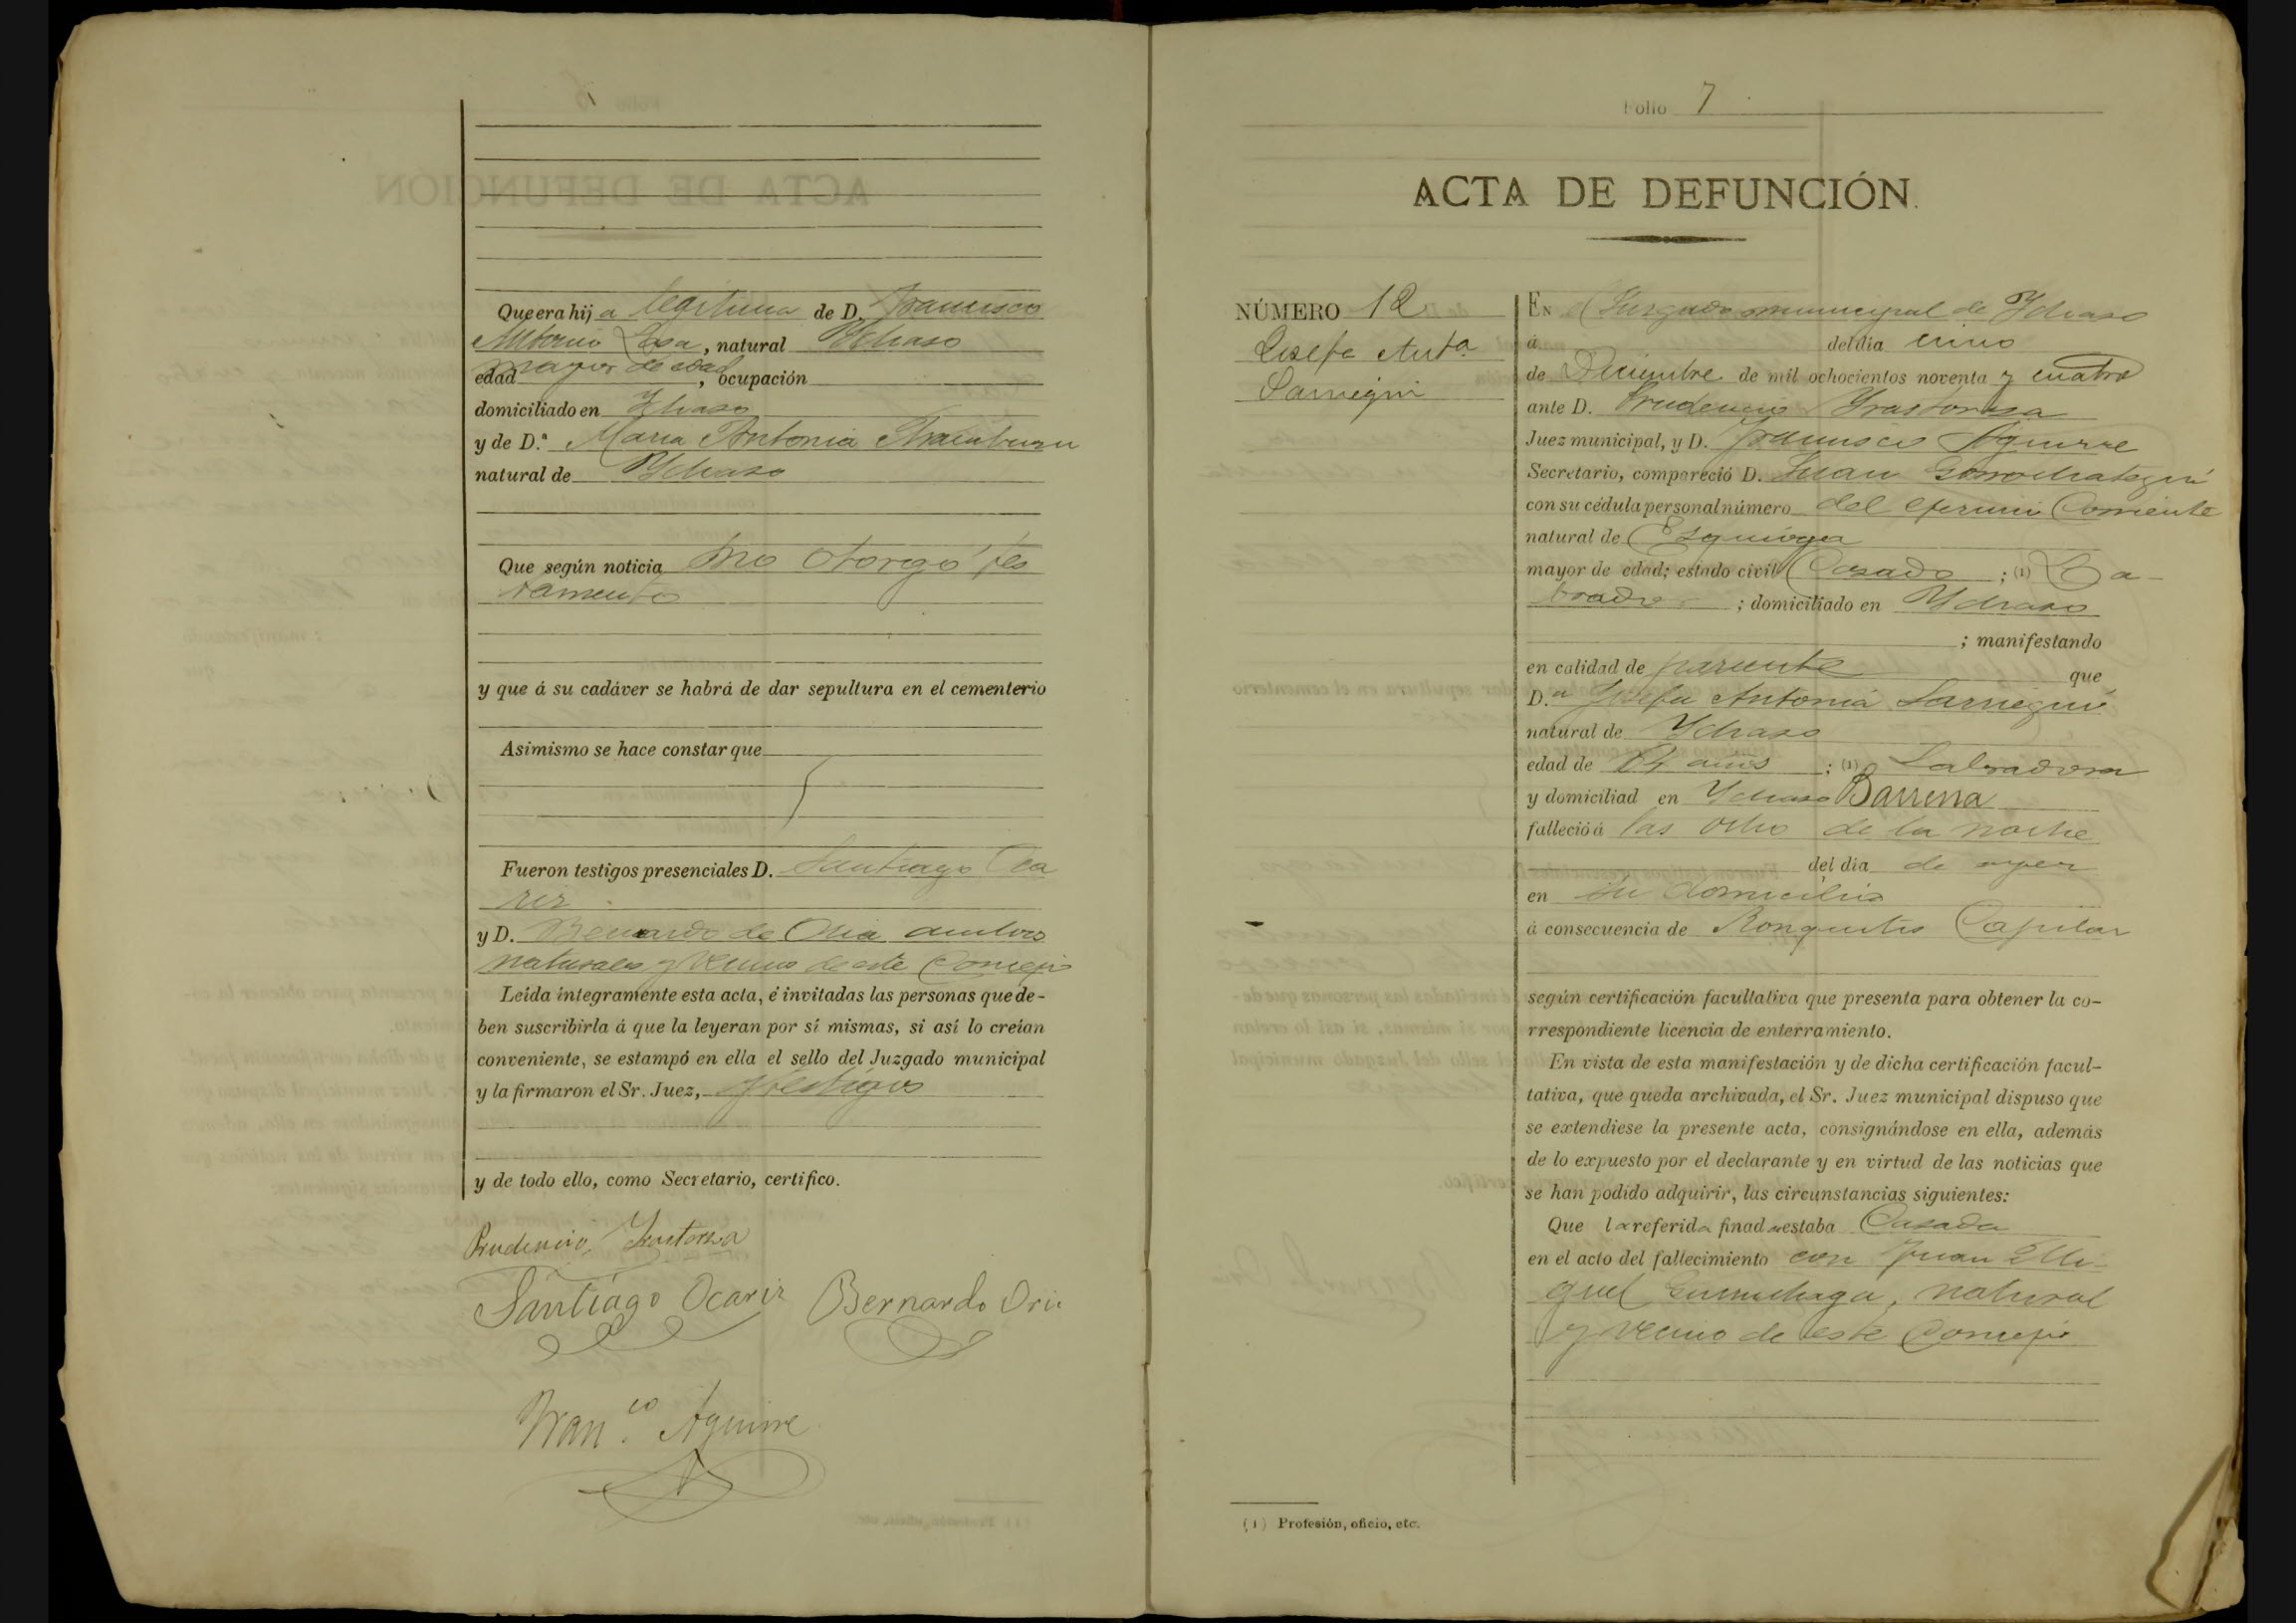 Que era hij a legitima de D. Francisco
Antonio Lasa, natural Ychaso
edad mayor de edad, ocupación
domiciliado en Ychaso
y de D.ª Maria Antonia Aramburu
natural de Ychaso
Que según noticia no otorgó tes
tamento
y que á su cadáver se habrá de dar sepultura en el cementerio
Asimismo se hace constar que
Fueron testigos presenciales D. Santiago Oca
riz
y D. Bernardo de Oria ambos
naturales y vecinos de este Concejo
Leída íntegramente esta acta, é invitadas las personas que de-
ben suscribirla á que la leyeran por sí mismas, si así lo creían
conveniente, se estampó en ella el sello del Juzgado municipal
y la firmaron el Sr. Juez, y testigos
y de todo ello, como Secretario, certifico.
Prudencio Yrastorza
Santiago Ocariz Bernardo Oria
Fran.co Aguirre
Folio 7
ACTA DE DEFUNCIÓN.
NÚMERO 12
Josefa Anta
Sarriegui
EN el Juzgado municipal de Ychaso
á del día cinco
de Diciembre de mil ochocientos noventa y cuatro
ante D. Prudencio Yrastorza
Juez municipal, y D. Francisco Aguirre
Secretario, compareció D. Juan Gorrochategui
con su cédula personal número del ejercicio Corriente
natural de Ezquioga
mayor de edad; estado civil Casado; (1) La-
brador; domiciliado en Ychaso
; manifestando
en calidad de pariente que
D.ª Josefa Antonia Sarriegui
natural de Ychaso
edad de años; (1) Labradora
y domiciliad en Ychaso Barrena
falleció á las ocho de la noche
del día de ayer
en su domicilio
á consecuencia de Bronquitis Capilar
según certificación facultativa que presenta para obtener la co-
rrespondiente licencia de enterramiento.
En vista de esta manifestación y de dicha certificación facul-
tativa, que queda archivada, el Sr. Juez municipal dispuso que
se extendiese la presente acta, consignándose en ella, además
de lo expuesto por el declarante y en virtud de las noticias que
se han podido adquirir, las circunstancias siguientes:
Que la referida finada estaba Casada
en el acto del fallecimiento con Juan Mi-
guel Gurruchaga, natural
y vecino de este Concejo
(1) Profesión, oficio, etc.